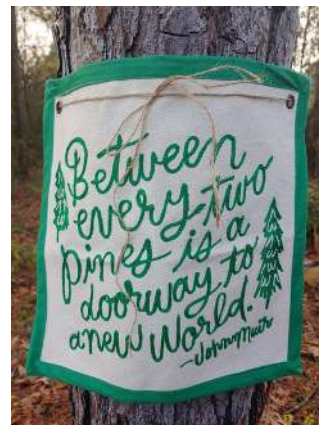 Between
every two
pines is a
doorway to
a new World.
-John Muir